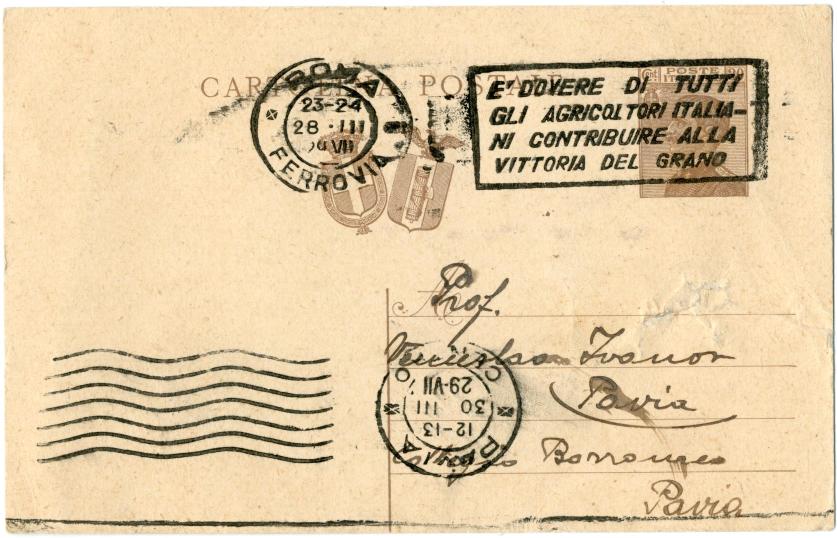 CARTOLINA POSTALE
ROMA
23-24
28 · III
29 VII
FERROVIA
E' DOVERE DI TUTTI
GLI AGRICOLTORI ITALIA-
NI CONTRIBUIRE ALLA
VITTORIA DEL GRANO
POSTE
ITAL
A
Prof.
Venceslao Ivanov
Pavia
Borromeo
Pavia
PAVIA
12-13
30 III
29·VII